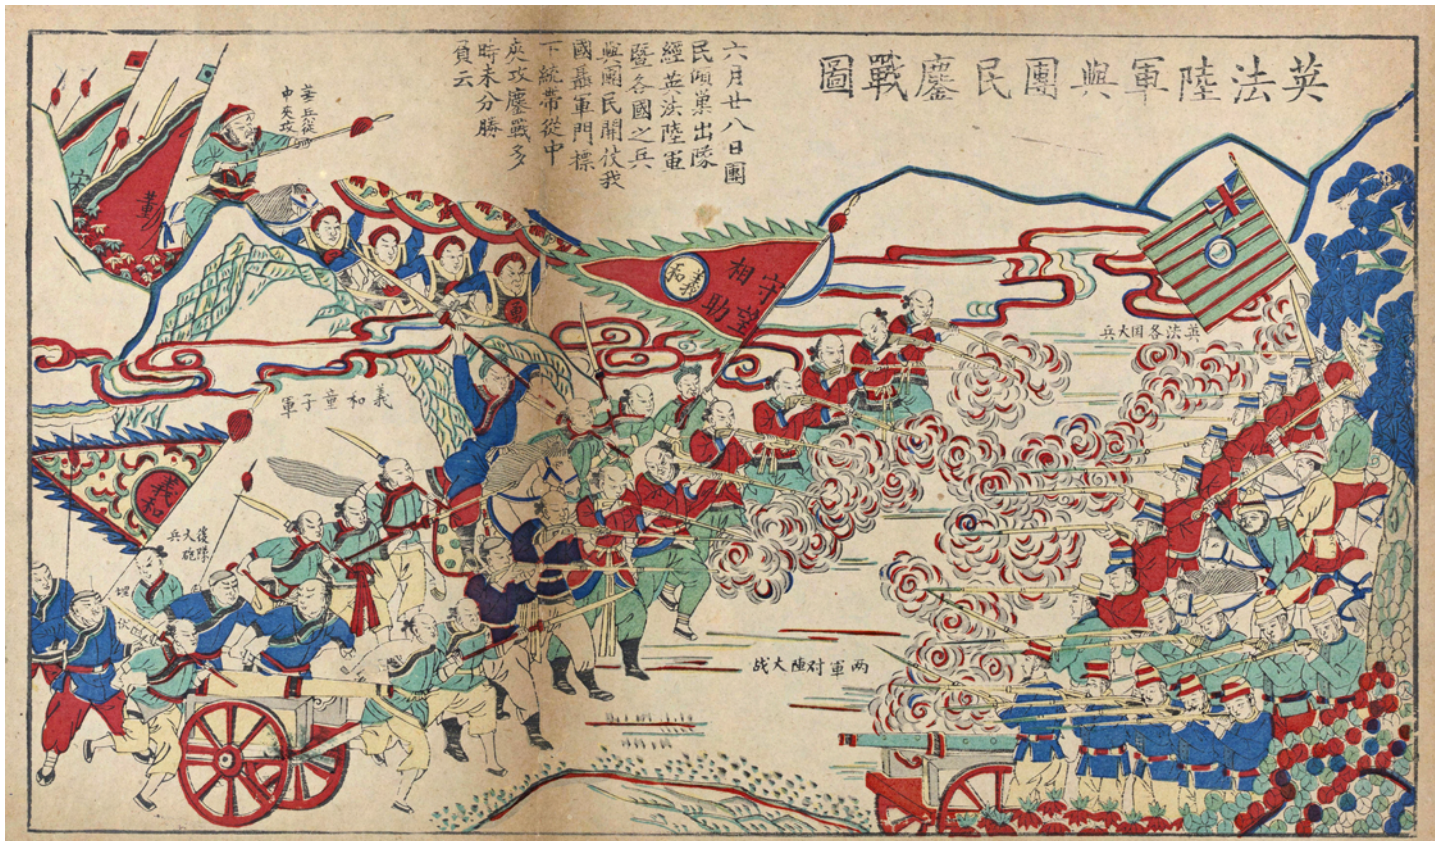 英法陸軍與團民鏖戰圖
六月廿八日團
民傾巢出隊
經英法陸軍
暨各國之兵
與團民開仗我
國聶軍門標
下統帶從中
夾攻鏖戰多
時未分勝
負云
董兵從
中夾攻
董
宋
勇
守望
相助
義和
英法各国大兵
義和童子軍
義和
後隊
大砲
兵
两軍对陣大战